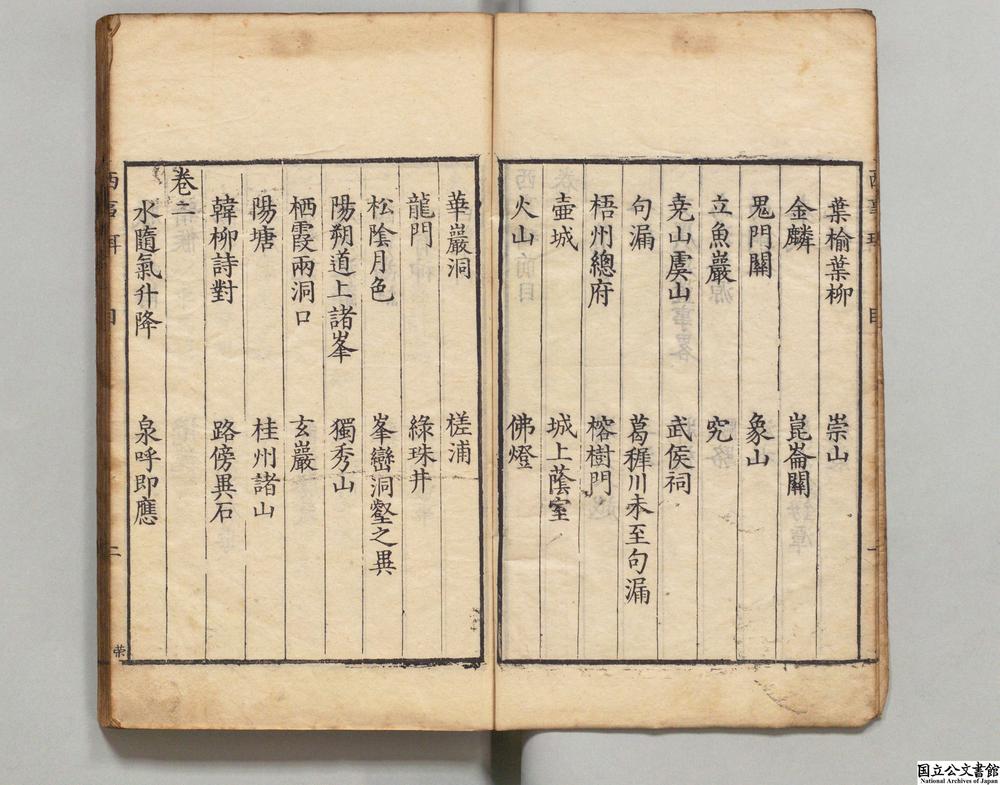 葉榆葉柳　崇山
金麟　崑崙關
鬼門關　象山
立魚巖　究
尭山虞山　武侯祠
句漏　葛稚川未至句漏
梧州總府　榕樹門
壷城　城上蔭室
火山　佛燈
華巖洞　槎浦
龍門　綠珠井
松陰月色　峯巒洞壑之異
陽朔道上諸峯　獨秀山
栖霞兩洞口　玄巖
陽塘　桂州諸山
韓柳詩對　路傍異石
卷二
水隨氣升降　泉呼即應
西事珥　目　二
国立公文書館
National Archives of Japan